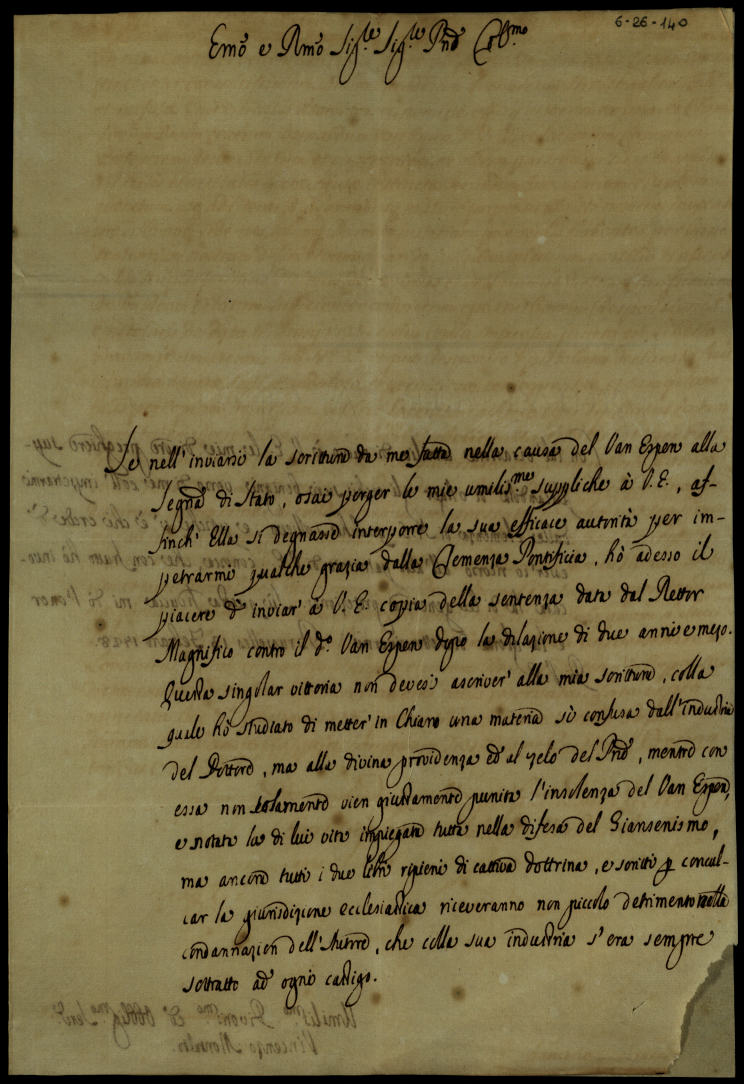 6-26-140
Emo e Rmo Sig.re Sig.re Pnē Col.mo
Se nell'inviarsi la scrittura da me fatta nella causa del Van Espen alla
Segria di Stato, osai porger le mie umiliss.me suppliche à V.E., af-
finch' Ella si degnasse interporre la sua efficace autorità per im-
petrarmi qualche grazia dalla Clemenza Pontificia, hò adesso il
piacere d'inviar' à V.E. copia della sentenza data dal Rettor
Magnifico contro il d.o Van Espen dopo la dilazione di due anni e mezo.
Questa singolar vittoria non devesi ascriver' alla mia scrittura, colla
quale hò studiato di metter' in Chiaro una materia sì confusa dall'industria
del Dottore, ma alla divina providenza ed al zelo del Pnē, mentre con
essa non solamente vien giustamente punita l'insolenza del Van Espen,
e notata la di lui vita impiegata tutta nella difesa del Giansenismo,
ma ancora tutti i due libri ripieni di cattiva dottrina, e scritti p concul-
car la giurisdizione ecclesiastica riceveranno non piccolo detrimento nella
condannazion dell'Autore, che colla sua industria s'era sempre
sottratto ad ogni castigo.